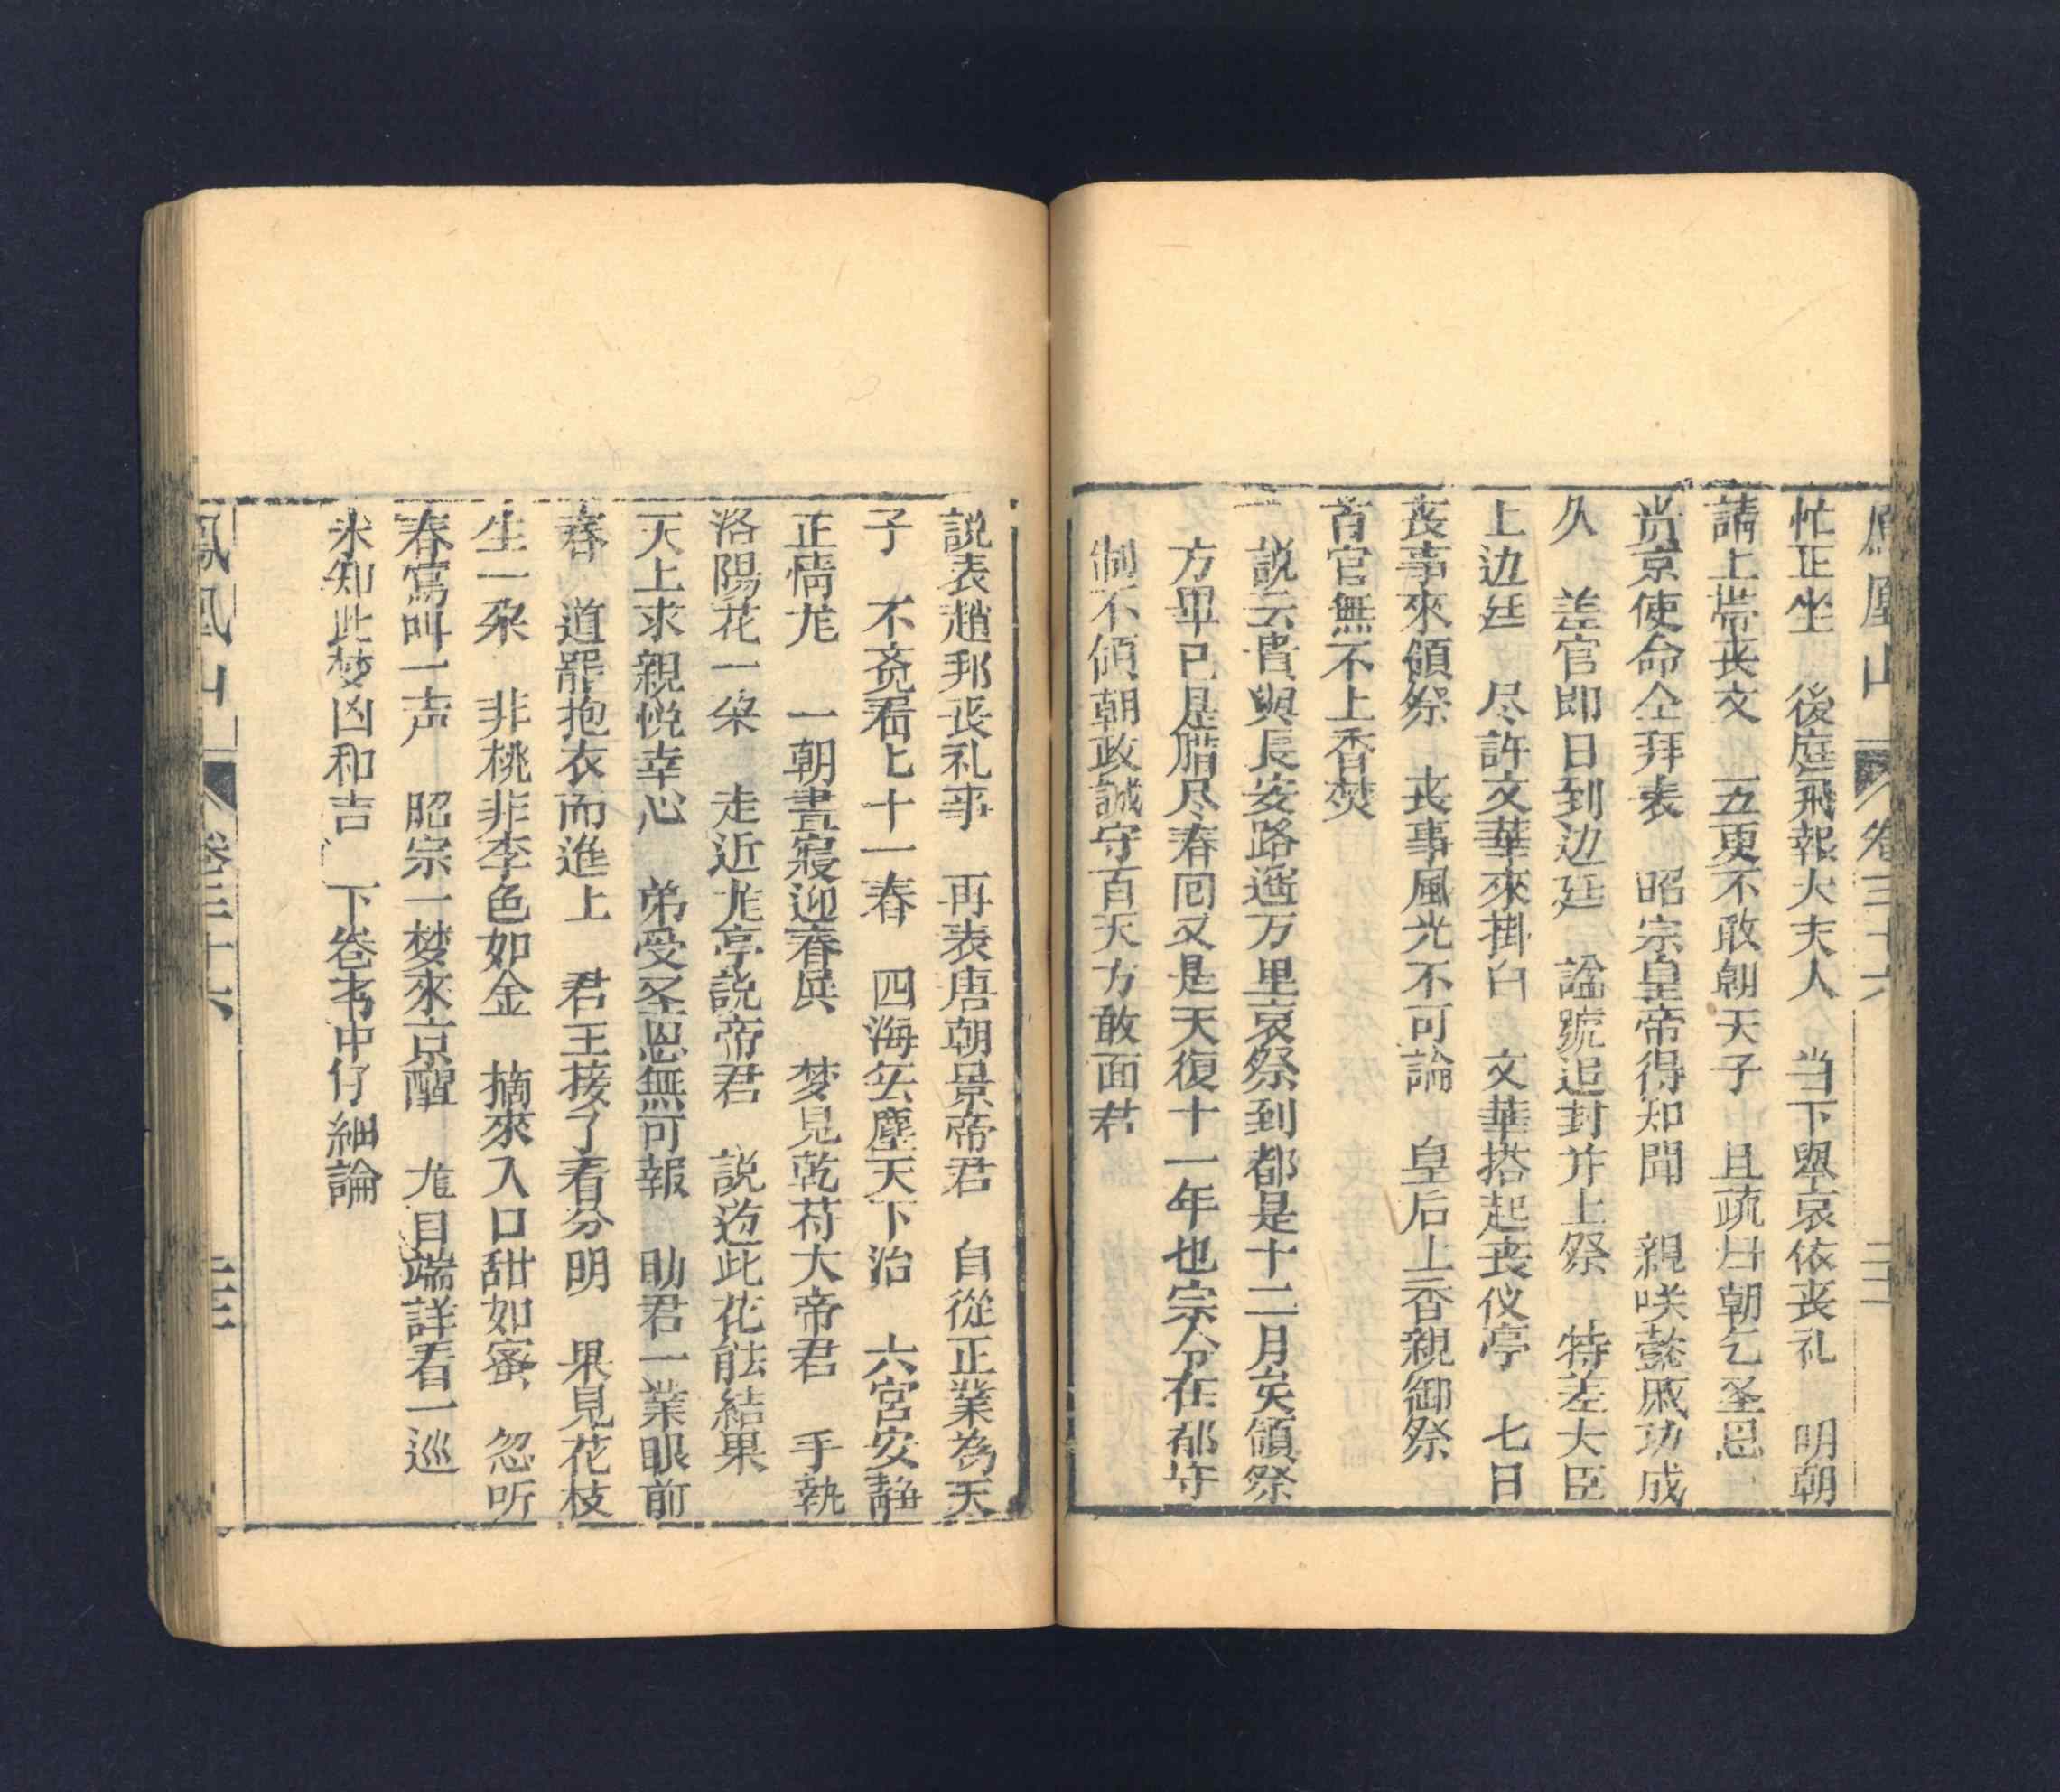 鳳凰山 卷三十六 三三
忙正坐 後庭飛報大夫人 当下盥哀依丧礼 明朝
請上帝丧文 五更不敢朝天子 且疏归朝乞圣恩
赍京使命仝拜表 昭宗皇帝得知聞 親咲懿戚功成
久 差官即日到边廷 謚號追封并上祭 特差大臣
上边廷 尽許文華來掛白 文華搭起丧仪亭 七日
丧事來領祭 丧事風光不可論 皇后上香親御祭
百官無不上香焚
説云貴與長安路遥万里哀祭到都是十二月矣領祭
方畢已是腊尽春囘又是天復十一年也宗令在郁守
制不傾朝政誠守百天方敢面君
説表趙邦丧礼事 再表唐朝景帝君 自從正業為天
子 不竟君七十一春 四海无塵天下治 六宮安静
正情尨 一朝晝寢迎春呉 梦見乾苻大帝君 手執
洛陽花一朶 走近尨亭説帝君 説道此花能結果
天上求親悦幸心 弟受圣恩無可報 助君一業眼前
春 道罷抱衣而進上 君王接了看分明 果見花枝
生一朶 非桃非李色如金 摘來入口甜如蜜 忽听
春鶯叫一声 昭宗一梦來京醒 尨目端詳看一巡
未知此梦凶和吉 下卷书中仔細論
鳳凰山 卷三十六 三三